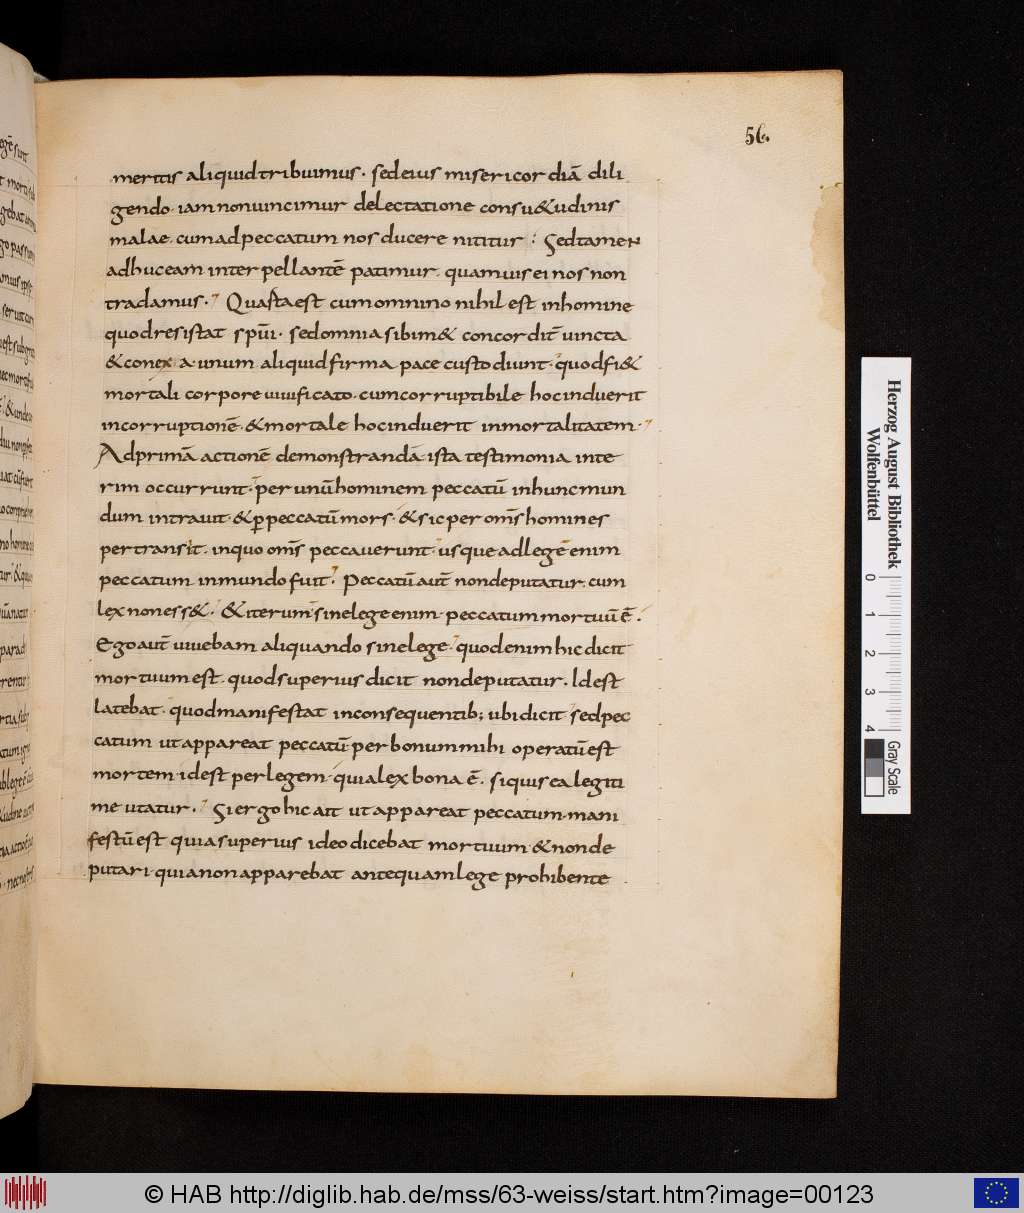 56.
meritis aliquid tribuimus · sed eius misericordiā dili
gendo · iam non uincimur delectatione consu&udinis
malae · cum ad peccatum nos ducere nititur : Sed tamen
adhuc eam interpellantē patimur · quamuis ei nos non
tradamus · Quarta est cum omnino nihil est in homine
quod resistat sp̄ui · sed omnia sibim& concordit̄ uincta
& conexa · unum aliquid firma pace custodiunt · quod fi&
mortali corpore uiuificato · cum corruptibile hoc induerit
incorruptionē · & mortale hoc induerit inmortalitatem ·
Ad primā actionē demonstrandā · ista testimonia inte
rim occurrunt · per unū hominem peccatū in hunc mun
dum intrauit · & p̱ peccatū mors · & sic per om̄s homines
pertransiit · in quo om̄s peccauerunt · usque ad legē enim
peccatum in mundo fuit · Peccatū aut̄ non deputatur · cum
lex non ess& · & iterum · sine lege enim · peccatum mortuū ē ·
Ego aut̄ uiuebam aliquando sine lege · quod enim hic dicit
mortuum est · quod superius dicit non deputatur · Id est
latebat · quod manifestat in consequentib; ubi dicit · sed pec
catum ut appareat peccatū · per bonum mihi operatū est
mortem · id est per legem · quia lex bona ē · si quis ea legiti
me utatur · Si ergo hic ait ut appareat peccatum · mani
festū est quia superius ideo dicebat mortuum · & non de
putari · quia non apparebat antequam lege prohibente
Herzog August Bibliothek
Wolfenbüttel
0 1 2 3 4
Gray Scale
© HAB http://diglib.hab.de/mss/63-weiss/start.htm?image=00123